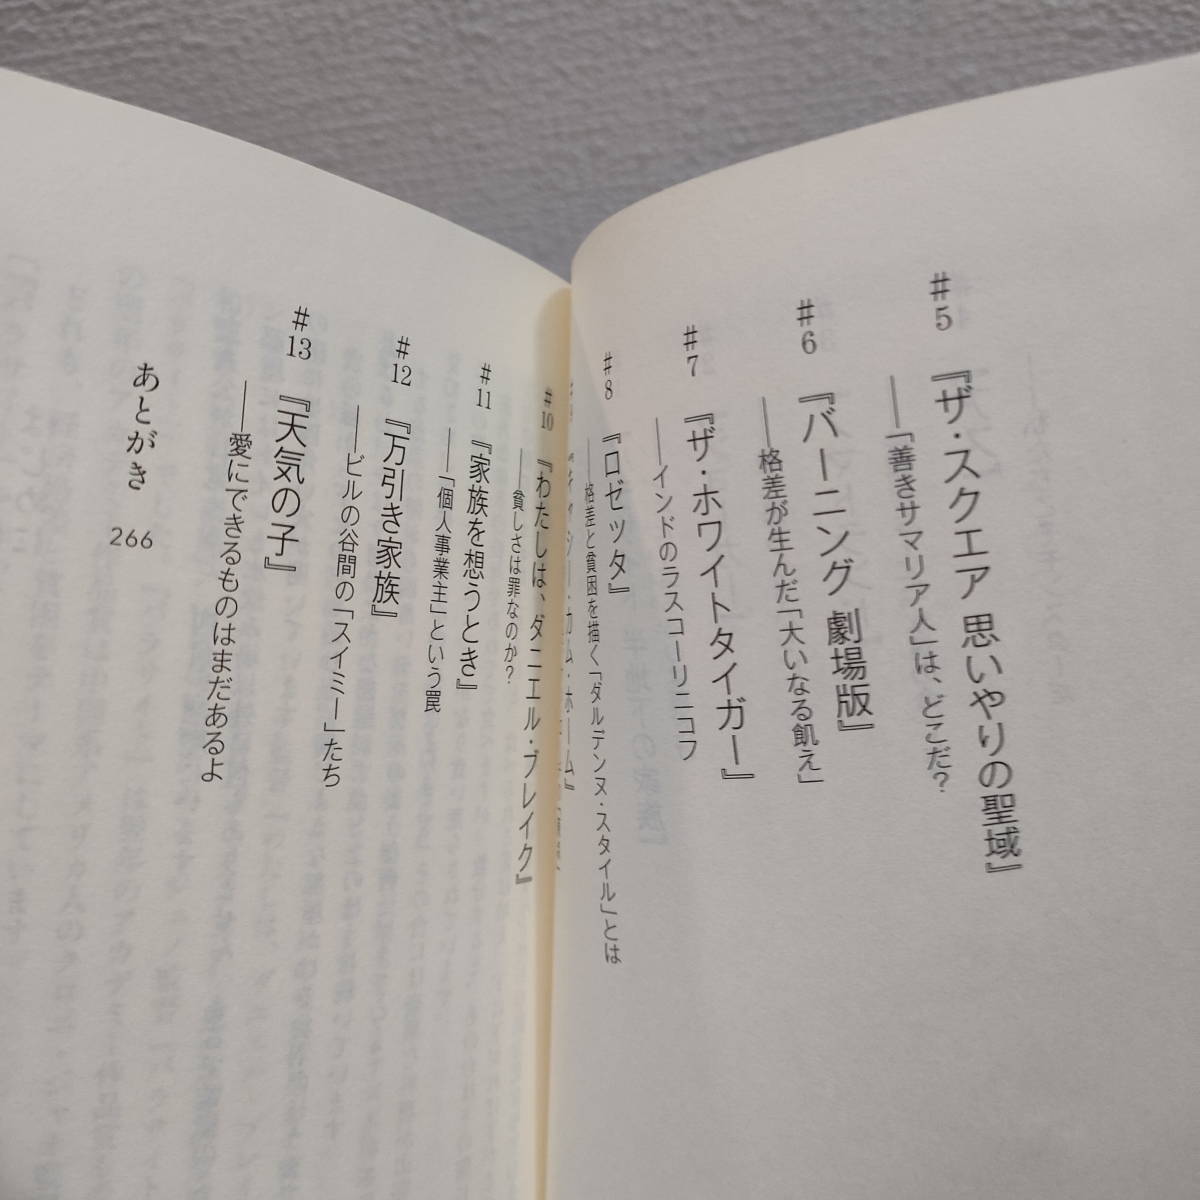 #5 『ザ・スクエア 思いやりの聖域』
——「善きサマリア人」は、どこだ?
#6 『バーニング 劇場版』
——格差が生んだ「大いなる飢え」
#7 『ザ・ホワイトタイガー』
——インドのラスコーリニコフ
#8 『ロゼッタ』
——格差と貧困を描く「ダルデンヌ・スタイル」とは
カム・ホーム』
#10 『わたしは、ダニエル・ブレイク』
——貧しさは罪なのか?
#11 『家族を想うとき』
——「個人事業主」という罠
#12 『万引き家族』
——ビルの谷間の「スイミー」たち
#13 『天気の子』
——愛にできるものはまだあるよ
あとがき 266